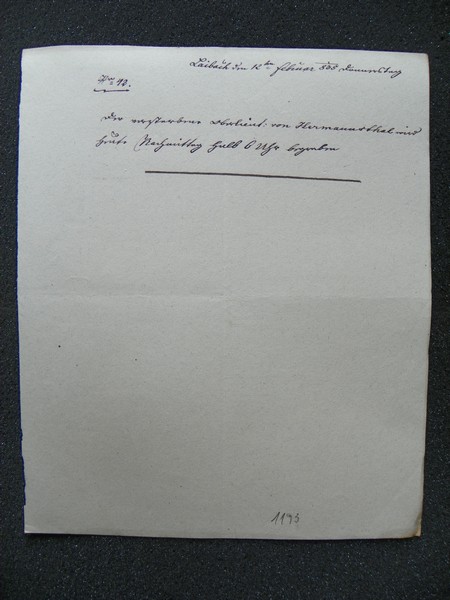 Laibach den 12ten Februar 855 Donnerstag
Nro 12.
Der verstorbene Oberlieut: von Hermannsthal wird
heute Nachmittag halb 6 Uhr begraben
1195